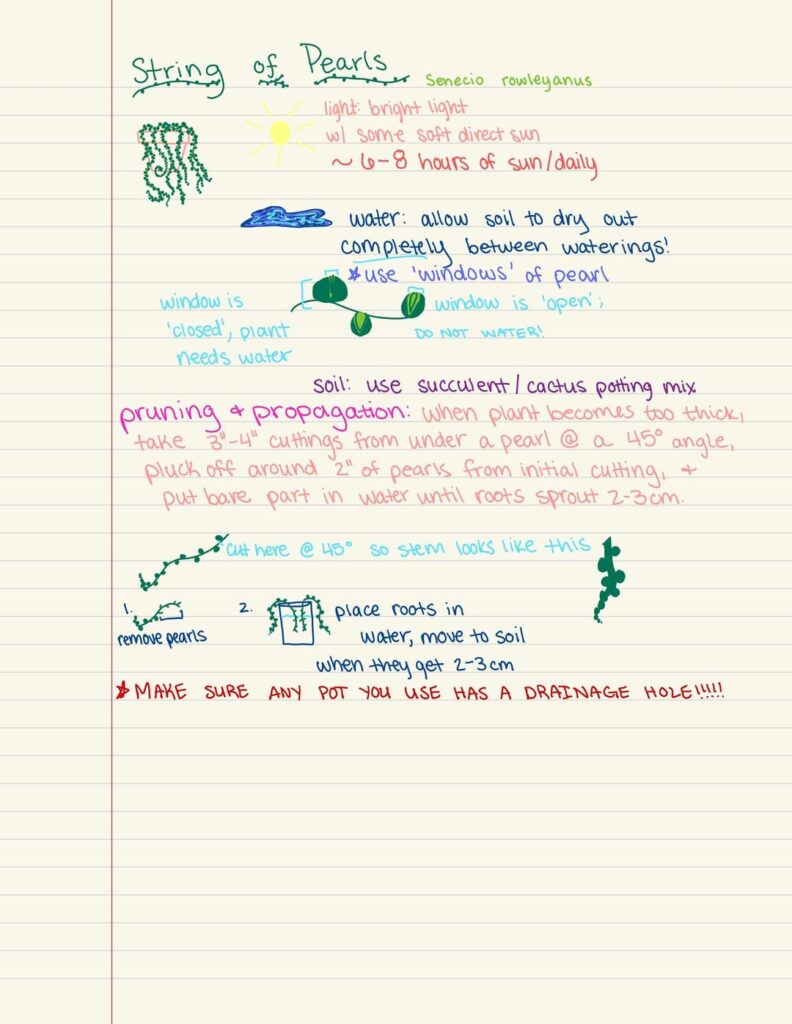 String of Pearls
Senecio rowleyanus
light: bright light
w/ some soft direct sun
~ 6-8 hours of sun/daily
water: allow soil to dry out
completely between waterings!
*use 'windows' of pearl
window is
'closed', plant
needs water
window is 'open';
DO NOT WATER!
soil: use succulent/cactus potting mix
pruning & propagation: when plant becomes too thick,
take 3"-4" cuttings from under a pearl @ a 45° angle,
pluck off around 2" of pearls from initial cutting, &
put bare part in water until roots sprout 2-3cm.
cut here @ 45° so stem looks like this
1.
remove pearls
2. place roots in
water, move to soil
when they get 2-3cm
*MAKE SURE ANY POT YOU USE HAS A DRAINAGE HOLE!!!!!